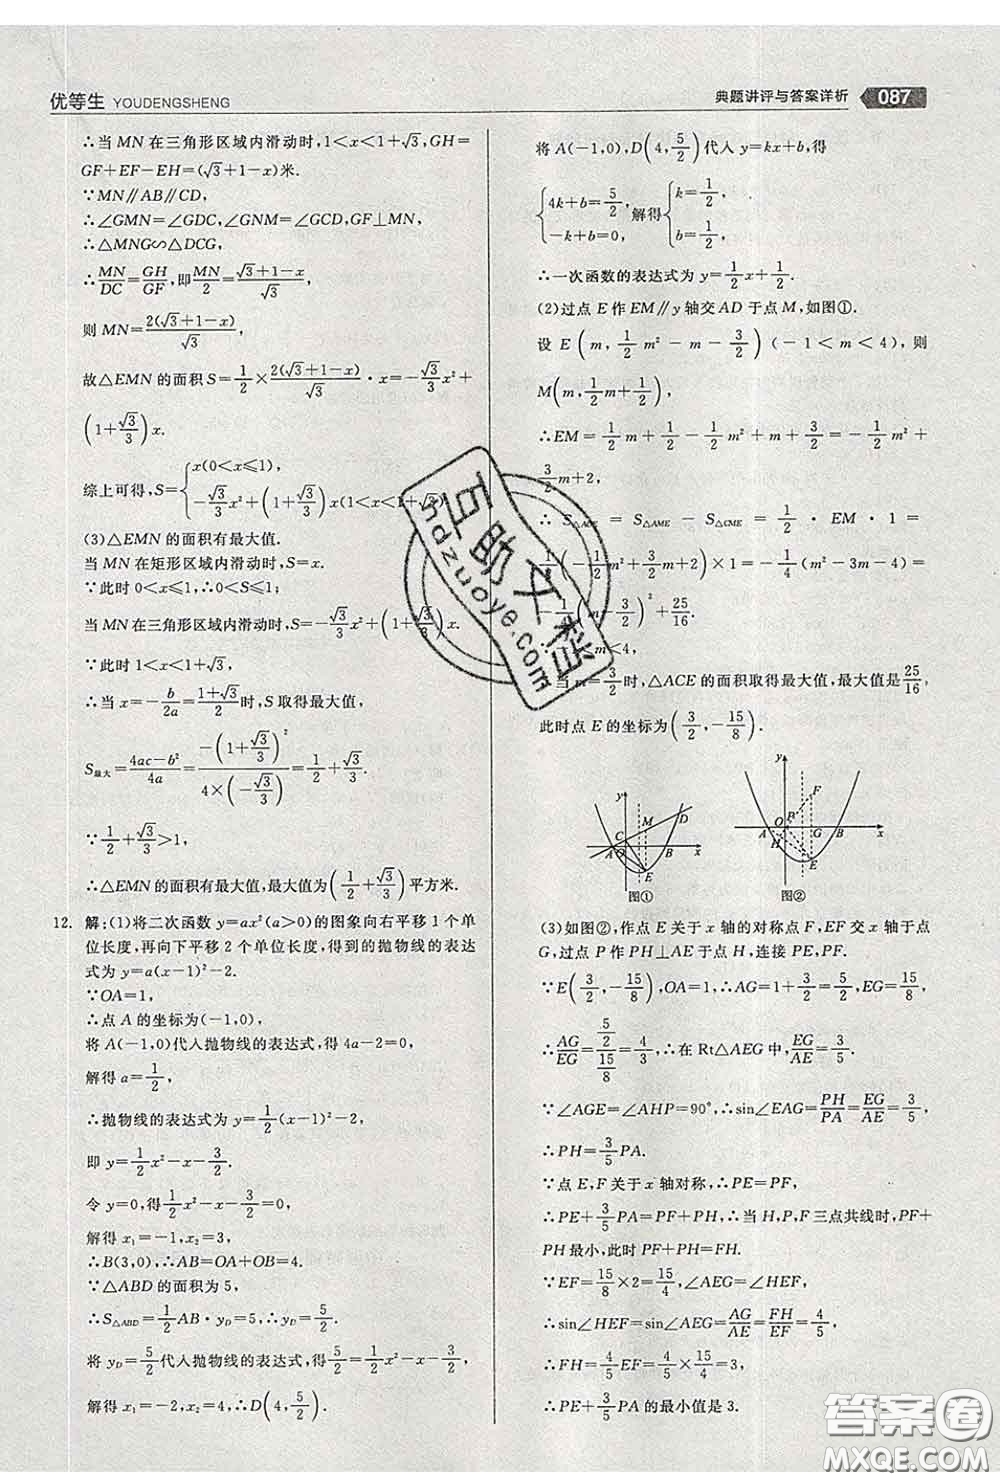 优等生 YOUDENGSHENG
典题讲评与答案详析 087
∴当 MN 在三角形区域内滑动时,1<x<1+√3,GH=
GF+EF-EH=(√3+1-x)米.
∵MN∥AB∥CD,
∴∠GMN=∠GDC,∠GNM=∠GCD,GF⊥MN,
∴△MNG∽△DCG,
∴MN/DC=GH/GF,即MN/2=(√3+1-x)/√3,
则 MN=2(√3+1-x)/√3,
故△EMN 的面积 S=1/2×2(√3+1-x)/√3·x=-√3/3x²+
(1+√3/3)x.
综上可得,S={x(0<x≤1), -√3/3x²+(1+√3/3)x(1<x<1+√3).
(3)△EMN 的面积有最大值.
当 MN 在矩形区域内滑动时,S=x.
∵此时 0<x≤1,∴0<S≤1;
当 MN 在三角形区域内滑动时,S=-√3/3x²+(1+√3/3)x.
∵此时 1<x<1+√3,
∴当 x=-b/2a=(1+√3)/2时,S 取得最大值,
S最大=(4ac-b²)/4a=-(1+√3/3)²/(4×(-√3/3))=1/2+√3/3.
∵1/2+√3/3>1,
∴△EMN 的面积有最大值,最大值为(1/2+√3/3)平方米.
12. 解:(1)将二次函数 y=ax²(a>0)的图象向右平移 1 个单
位长度,再向下平移 2 个单位长度,得到的抛物线的表达
式为 y=a(x-1)²-2.
∵OA=1,
∴点 A 的坐标为(-1,0),
将 A(-1,0)代入抛物线的表达式,得 4a-2=0,
解得 a=1/2,
∴抛物线的表达式为 y=1/2(x-1)²-2,
即 y=1/2x²-x-3/2.
令 y=0,得1/2x²-x-3/2=0,
解得 x₁=-1,x₂=3,
∴B(3,0),∴AB=OA+OB=4.
∵△ABD 的面积为 5,
∴S△ABD=1/2AB·yD=5,∴yD=5/2.
将 yD=5/2代入抛物线的表达式,得5/2=1/2x²-x-3/2,
解得 x₁=-2,x₂=4,∴D(4,5/2).
将 A(-1,0),D(4,5/2)代入 y=kx+b,得
{4k+b=5/2, -k+b=0, 解得{k=1/2, b=1/2,
∴一次函数的表达式为 y=1/2x+1/2.
(2)过点 E 作 EM∥y 轴交 AD 于点 M,如图①.
设 E(m,1/2m²-m-3/2)(-1<m<4),则
M(m,1/2m+1/2),
∴EM=1/2m+1/2-1/2m²+m+3/2=-1/2m²+
3/2m+2,
∴S△ACE=S△AME-S△CME=1/2·EM·1=
1/2(-1/2m²+3/2m+2)×1=-1/4(m²-3m-4)=
-1/4(m-3/2)²+25/16.
m<4,
当m=3/2时,△ACE 的面积取得最大值,最大值是25/16,
此时点 E 的坐标为(3/2,-15/8).
y C M D A O B x E
图①
y F A O P H G B x E
图②
(3)如图②,作点 E 关于 x 轴的对称点 F,EF 交 x 轴于点
G,过点 P 作 PH⊥AE 于点 H,连接 PE,PF.
∵E(3/2,-15/8),OA=1,∴AG=1+3/2=5/2,EG=15/8,
∴AG/EG=(5/2)/(15/8)=4/3,∴在 Rt△AEG 中,EG/AE=3/5.
∵∠AGE=∠AHP=90°,∴sin∠EAG=PH/PA=EG/AE=3/5,
∴PH=3/5PA.
∵点 E,F 关于 x 轴对称,∴PE=PF,
∴PE+3/5PA=PF+PH,∴当 H,P,F 三点共线时,PF+
PH最小,此时 PF+PH=FH.
∵EF=15/8×2=15/4,∠AEG=∠HEF,
∴sin∠HEF=sin∠AEG=AG/AE=FH/EF=4/5,
∴FH=4/5EF=4/5×15/4=3,
∴PE+3/5PA 的最小值是 3.
互助文档
hdzuoye.com
答案圈
MXQE.COM